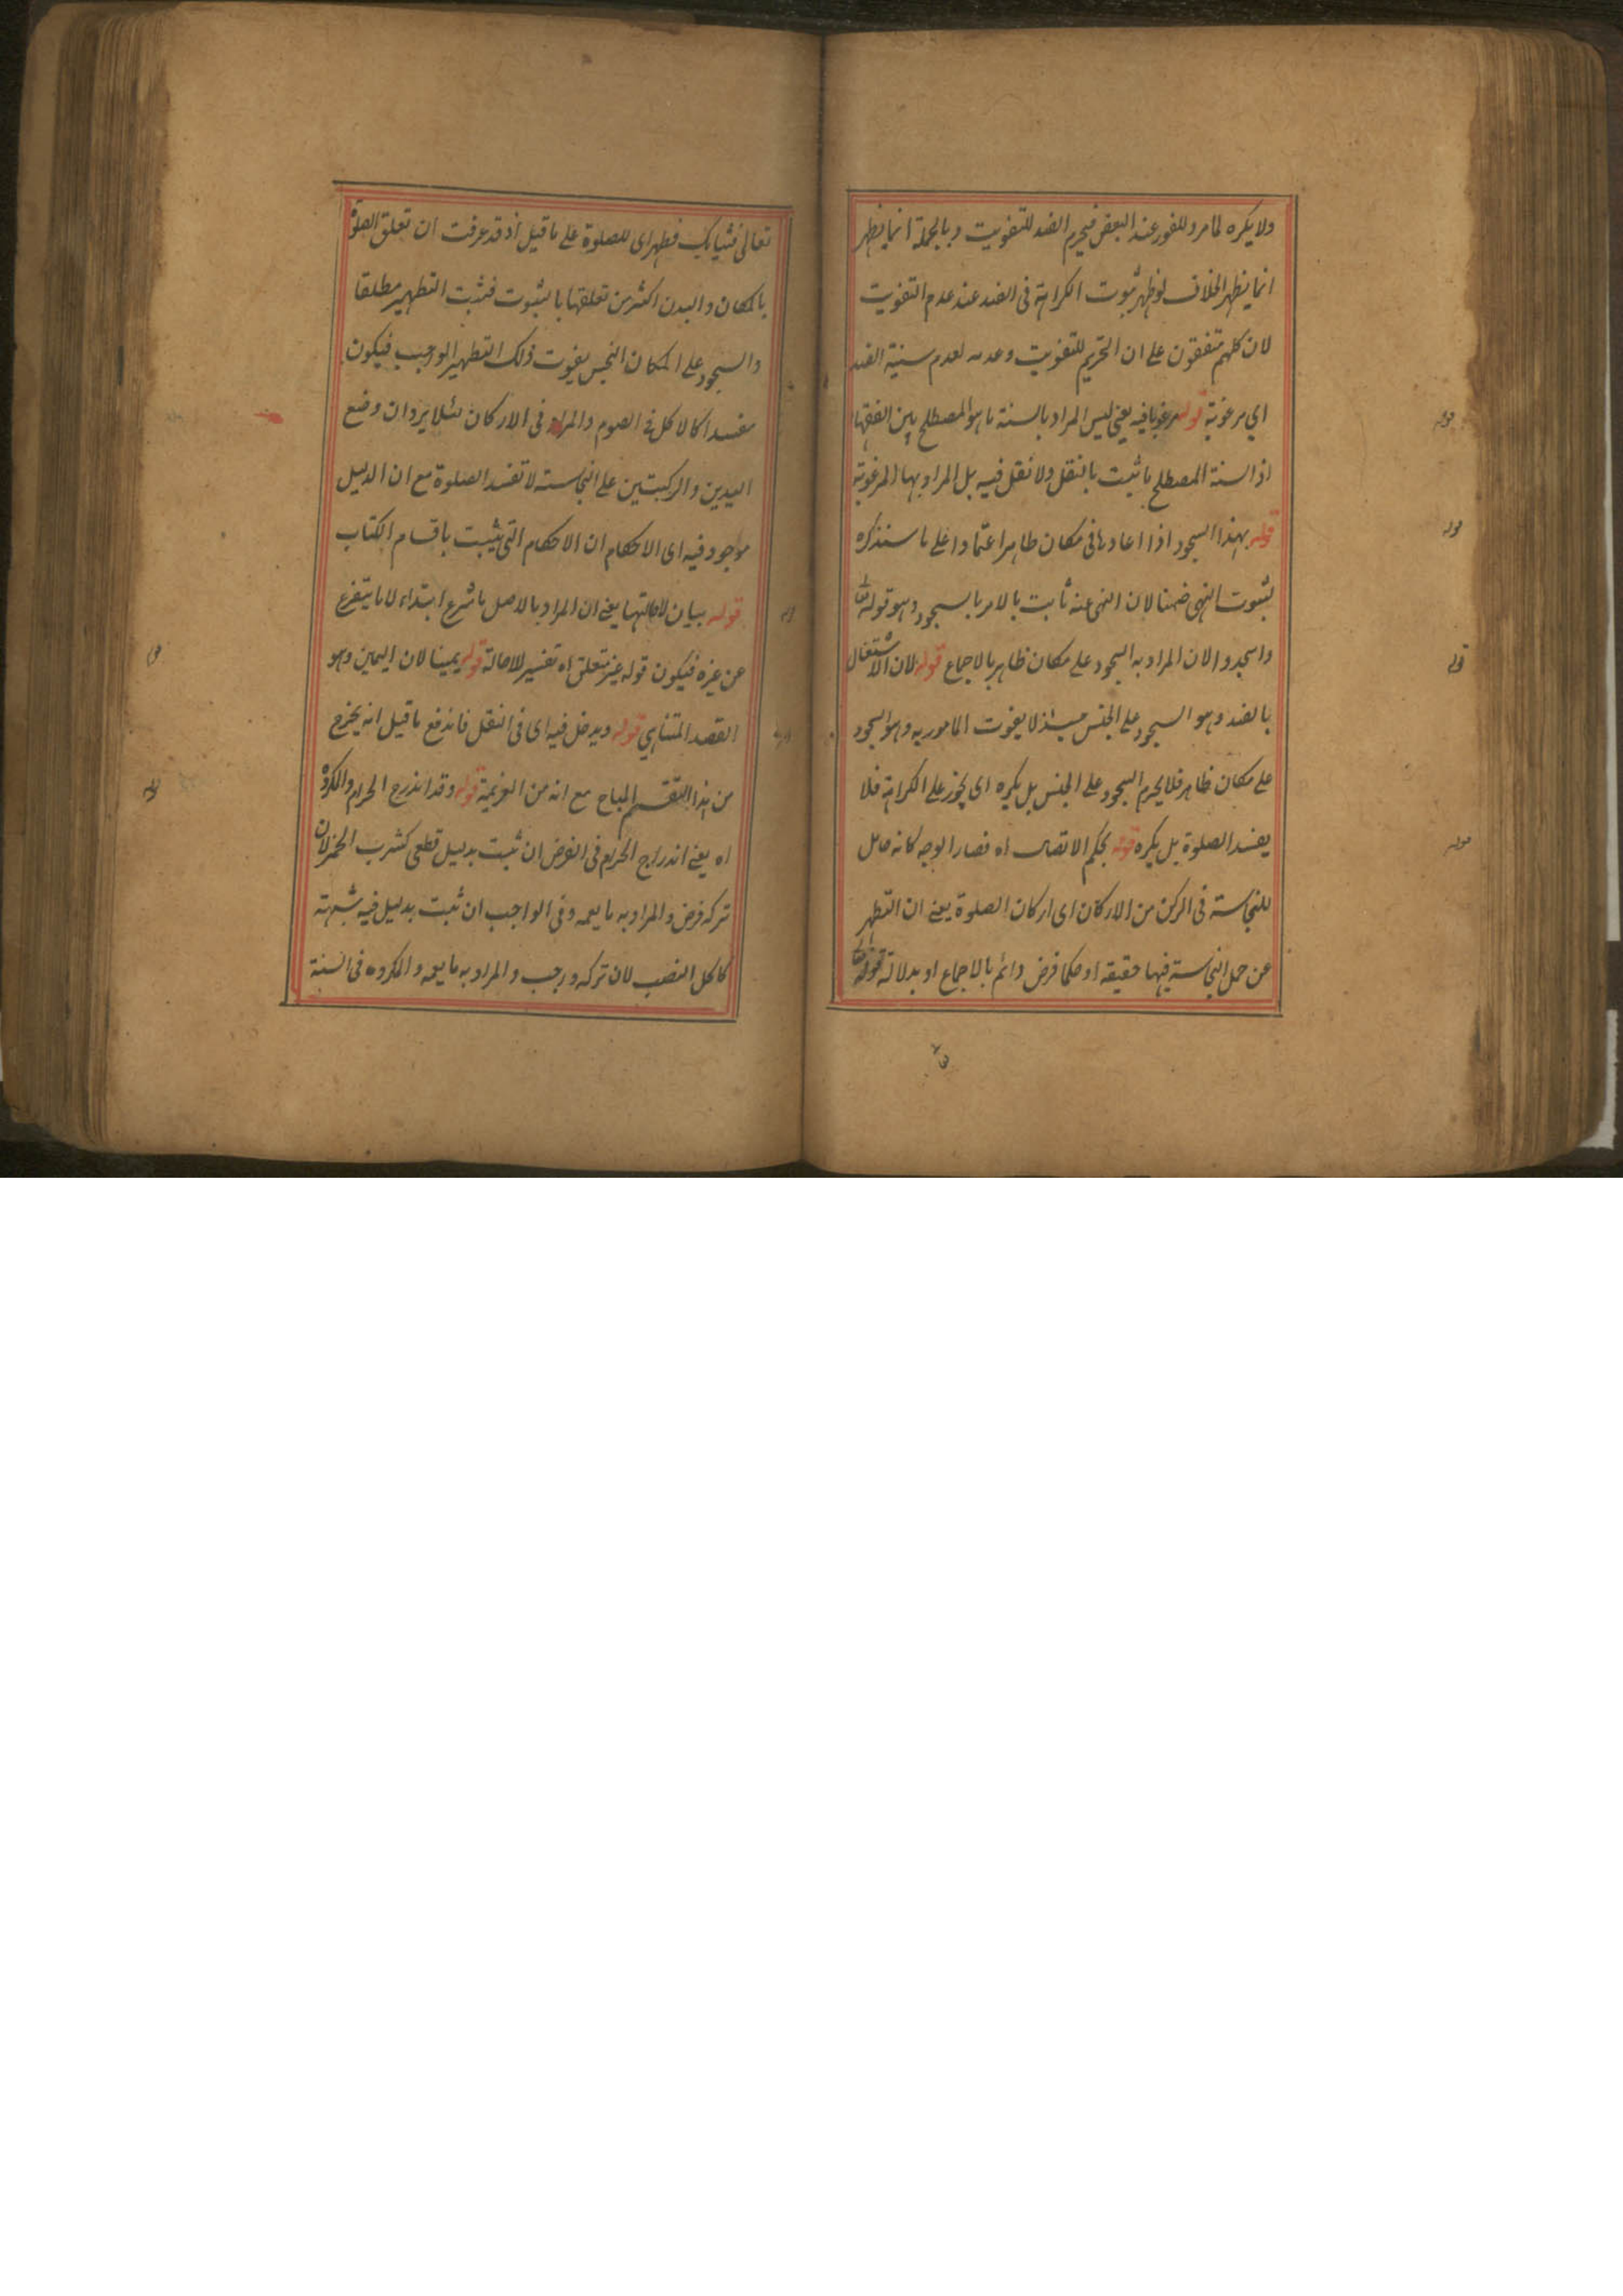 ولا يكره لما مر وللفور عند البعض فيحرم الضد للتفويت وبالجملة انما يظهر
انما يظهر الخلاف لو ظهر ثبوت الكراهة فى الضد عند عدم التفويت
لان كلهم متفقون على ان التحريم للتفويت وعدمه لعدم سنية الضد
اي مرغوبة قوله مرغوبا فيه يعنى ليس المراد بالسنة ما هو المصطلح بين الفقها
اذ السنة المصطلح ما ثبت بالنقل ولا نقل فيه بل المراد بها المرغوبة
قوله بهذا السجود اذا اعادها فى مكان طاهر اعتمادا على ما سنذكره
بثبوت النهى ضمنا لان النهى عنه ثابت بالامر بالسجود وهو قوله تعا
واسجدوا لان المراد به السجود على مكان طاهر بالاجماع قوله لان الاشتغال
بالضد وهو السجود على النجس حينئذ لا يفوت المامور به وهو السجود
على مكان طاهر فلا يحرم السجود على النجس بل يكره اى يجوز على الكراهة فلا
يفسد الصلوة بل يكره قوله بحكم الاتصال اه فصار الوجه كانه حامل
للنجاسة فى الركن من الاركان اى اركان الصلوة يعنى ان التطهر
عن حمل النجاسة فيها حقيقة او حكما فرض دائم بالاجماع او بدلالة قوله
تعالى فثيابك فطهر اى للصلوة على ما قيل اذ قد عرفت ان تعلق الصلوة
بالمكان والبدن اكثر من تعلقها بالثبوت فثبت التطهير مطلقا
والسجود على المكان النجس يفوت ذلك التطهير الواجب فيكون
مفسدا كالاكل فى الصوم والمراد فى الاركان لئلا يرد ان وضع
اليدين والركبتين على النجاسة لا تفسد الصلوة مع ان الدليل
موجود فيه اى الاحكام ان الاحكام التى يثبت باقسام الكتاب
قوله بيان لاصالتها يعنى ان المراد بالاصل ما شرع ابتداء لا ما يتفرع
عن غيره فيكون قوله غير متعلق اه تفسير للاصالة قوله يمينا لان اليمين وهو
القصد المتناهي قوله ويدخل فيه اى فى النفل فاندفع ما قيل انه يخرج
من هذا التقسيم المباح مع انه من العزيمة قوله وقد اندرج الحرام والمكروه
اه يعنى اندراج الحرام فى الفرض ان ثبت بدليل قطعى كشرب الخمر لان
تركه فرض والمراد به ما يعمه وفى الواجب ان ثبت بدليل فيه شبهة
كاكل الضب لان تركه واجب والمراد به ما يعمه والمكروه فى السنة